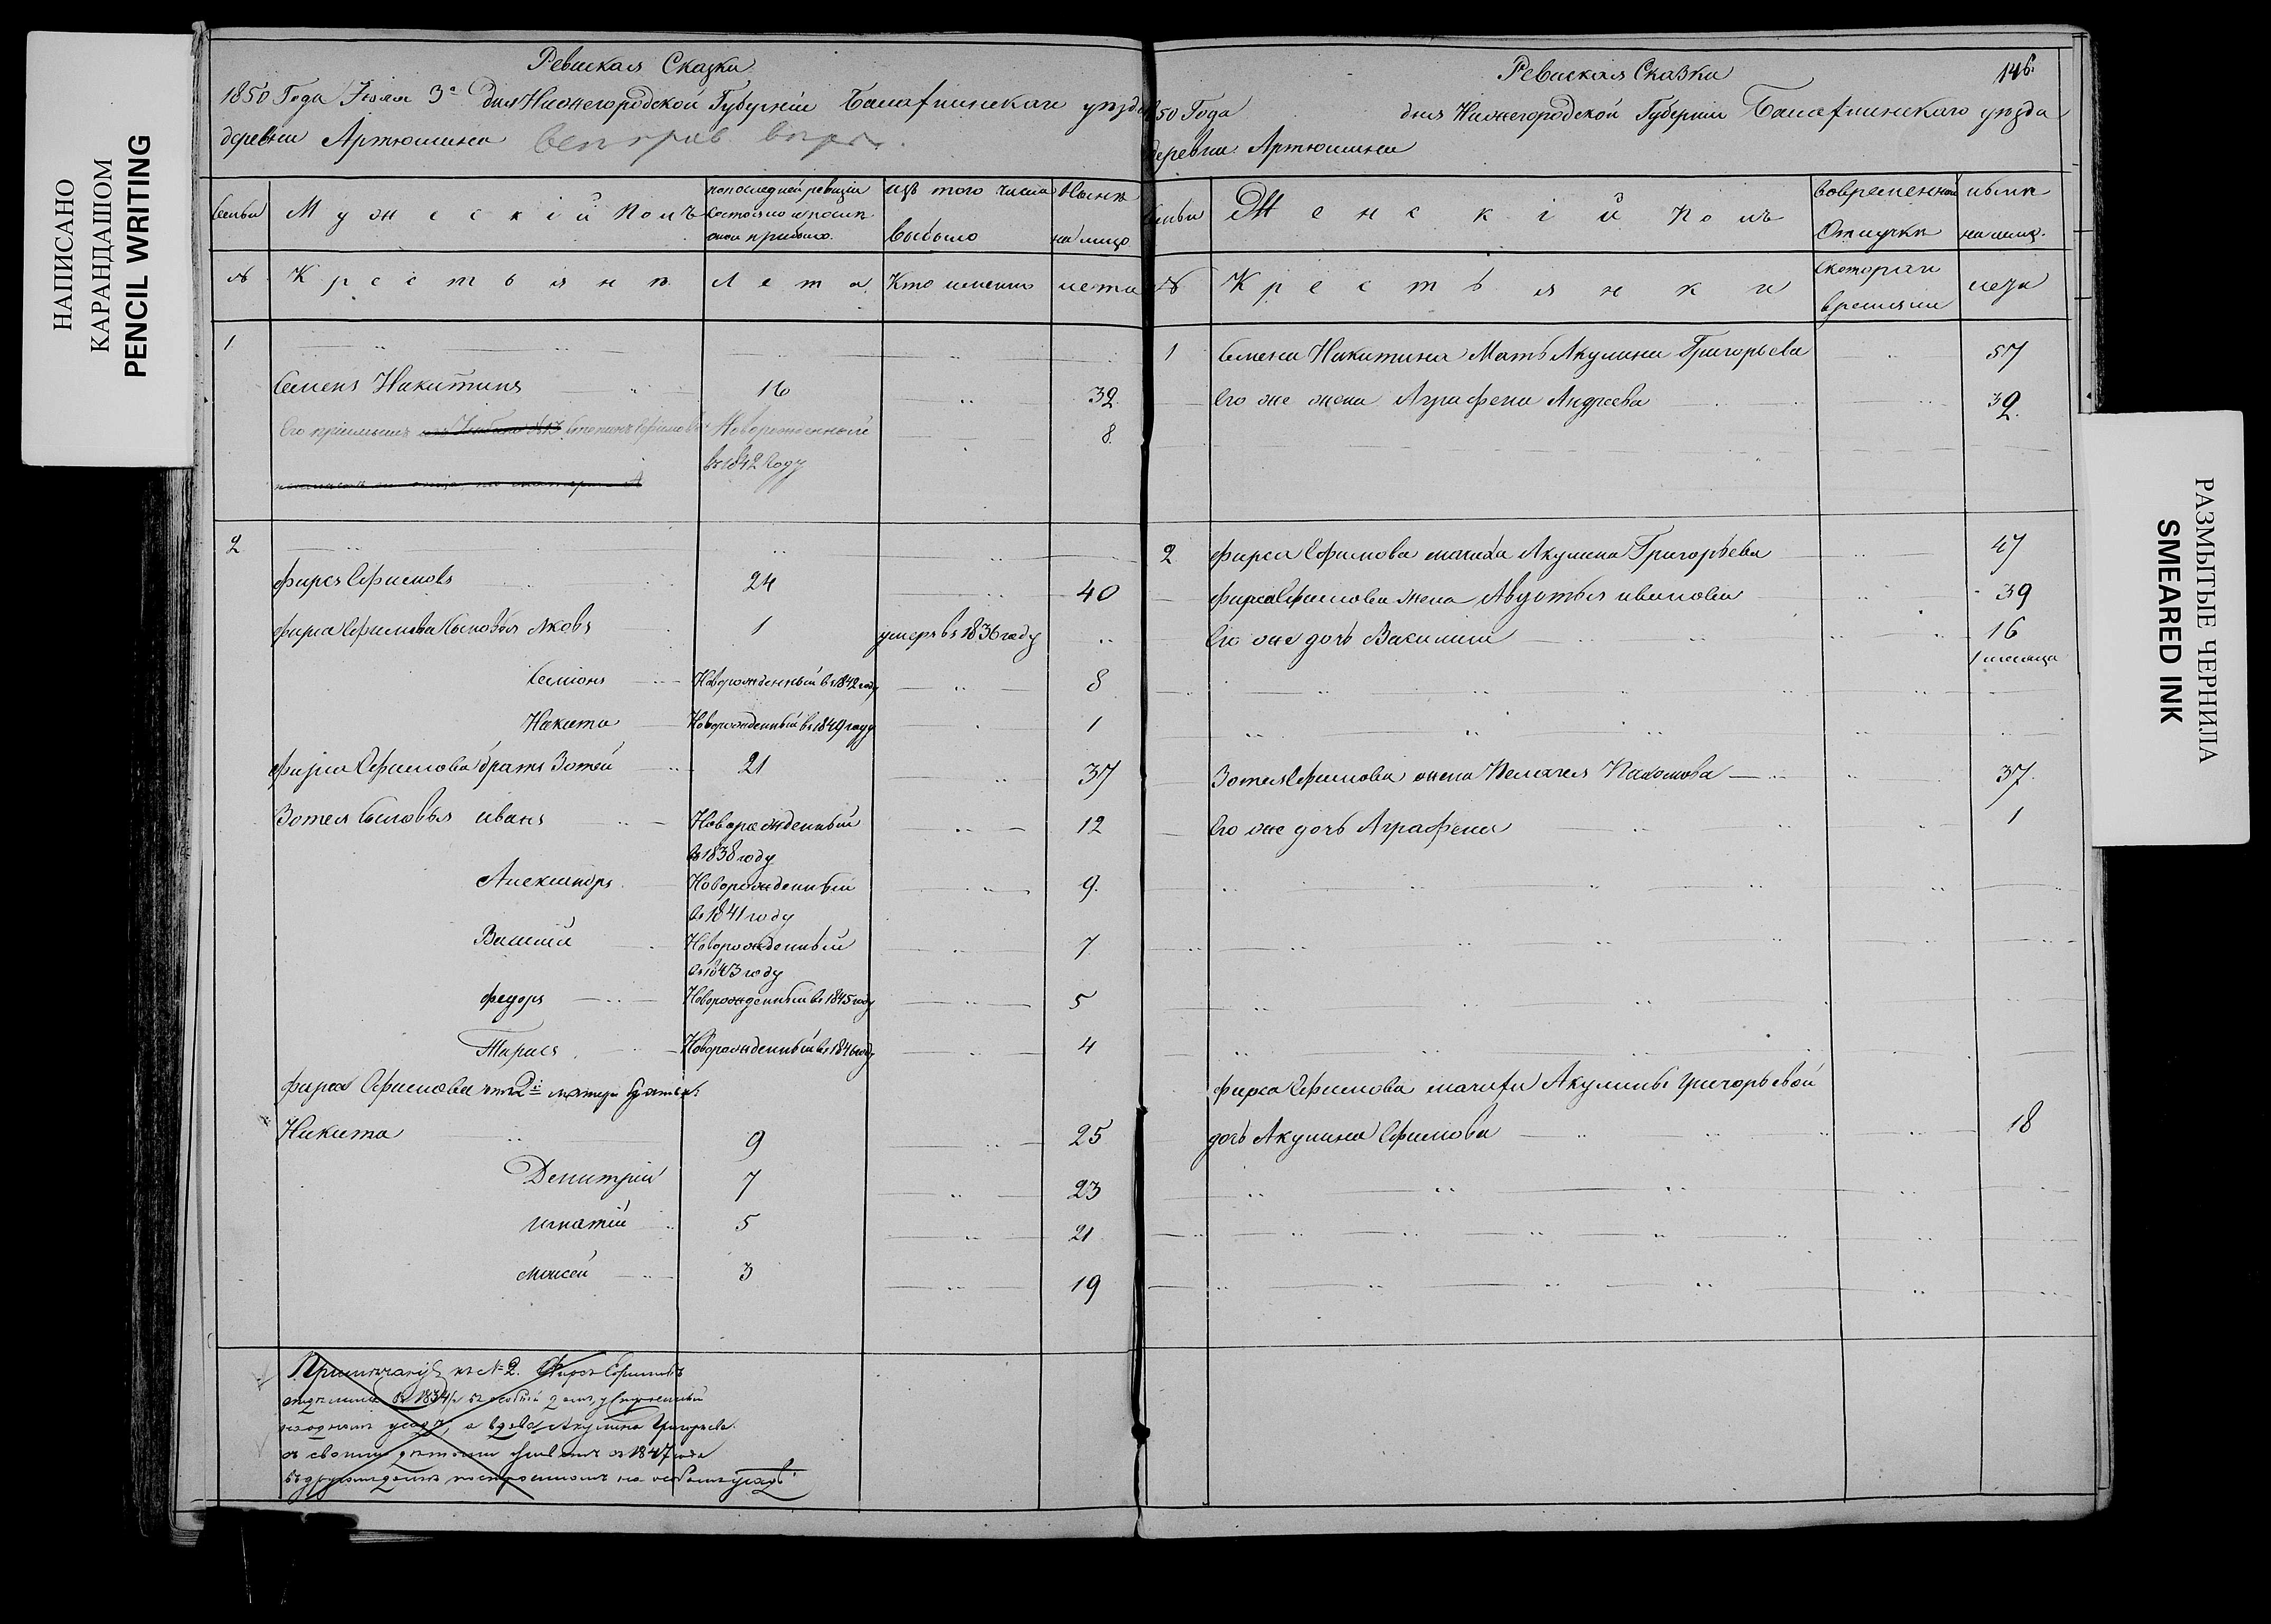 НАПИСАНО
КАРАНДАШОМ
PENCIL WRITING
Ревиская Сказка
1850 Года Июля 3го дня Нижегородской Губерніи Балахнинскаго уезда
деревни Артюшина
Семьи
Мужескій полъ
по последней ревизіи
состояло и после
оной прибыло.
изъ того числа
выбыло
Ныне
на лицо
№
Крестьяне
Лета
Кто именно
лета
1
Семенъ Никитинъ 16 32.
Его пріемышъ Новорожденный 8.
въ 1842 Году
2
Фирсъ Ефимовъ 24 40
Фирса Ефимова Сыновья Яковъ 1 умеръ въ 1836 году
Семіонъ Новорожденный въ 1842 году 8
Никита Новорожденный въ 1849 году 1
Фирса Ефимова братъ Зотей 21 37
Зотея Сыновья иванъ Новорожденный 12
въ 1838 году
Александръ Новорожденный 9.
въ 1841 году
Василій Новорожденный 7
въ 1843 году
Федоръ Новорожденный въ 1845 году 5
Тарасъ Новорожденный въ 1846 году 4
Фирса Ефимова отъ 2й матери братья
Никита 9 25
Демитрій 7 23
игнатій 5 21
моисей 3 19
Примечаніе къ № 2. Фирсъ Ефимовъ
въ 1834
а вдова Акулина Григорьева
съ своими детьми съ 1847 года
Ревиская Сказка 146.
50 Года дня Нижегородской Губерніи Балахнинскаго уезда
деревни Артюшина
Семьи
Женскій полъ
во временной
Отлучке
ныне
на лице.
№
Крестьянки
с котораго
времяни
лета
1 Семена Никитина Мать Акулина Григорьева 57
Его же жена Аграфена Андреева 32.
2 Фирса Ефимова мачиха Акулина Григорьева 47
Фирса Ефимова жена Авдотья иванова 39
Его же дочь Василиса 16
1 месяца
Зотея Ефимова жена Пелагея Пахомова 37.
Его же дочь Аграфена 1
Фирса Ефимова мачихи Акулины григорьевой
дочь Акулина Ефимова 18
РАЗМЫТЫЕ ЧЕРНИЛА
SMEARED INK